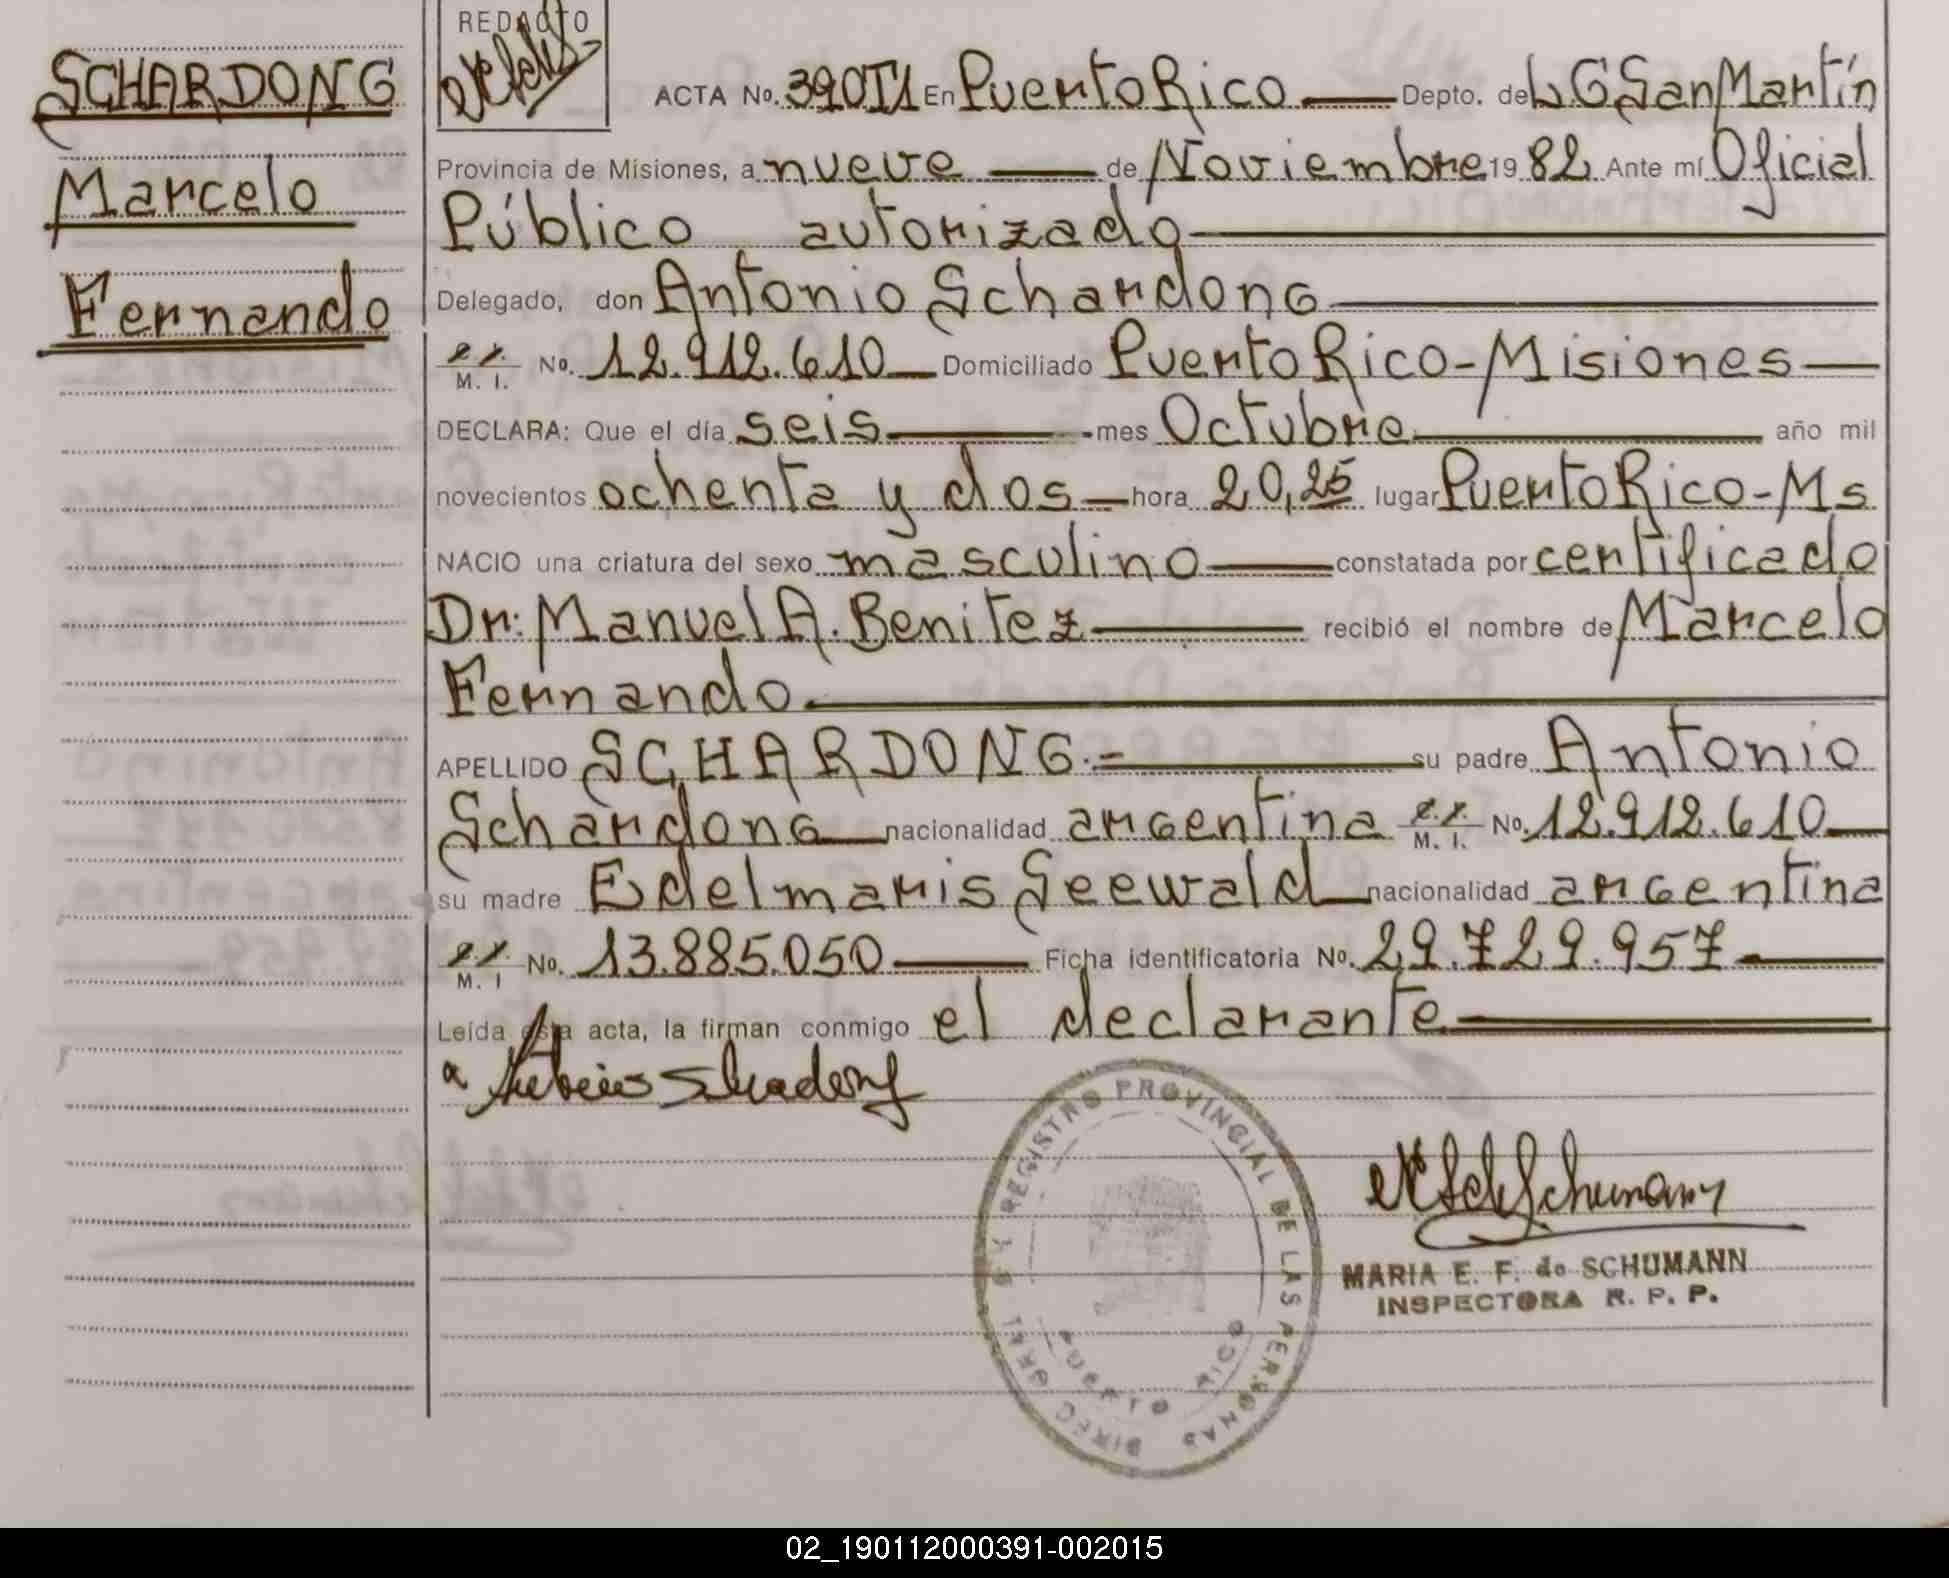 REDACTO
SCHARDONG
Marcelo
Fernando
ACTA No. 390T1 En Puerto Rico Depto. de L G San Martín
Provincia de Misiones, a nueve de Noviembre 1982 Ante mí Oficial
Público autorizado
Delegado, don Antonio Schardong
M. I. No. 12.912.610 Domiciliado Puerto Rico-Misiones
DECLARA: Que el día seis mes Octubre año mil
novecientos ochenta y dos hora 20,25 lugar Puerto Rico-Ms
NACIO una criatura del sexo masculino constatada por certificado
Dr: Manuel A. Benitez recibió el nombre de Marcelo
Fernando
APELLIDO SCHARDONG.= su padre Antonio
Schardong nacionalidad argentina M. I. No. 12.912.610
su madre Edelmaris Seewald nacionalidad argentina
M. I No. 13.885.050 Ficha identificatoria No. 29.729.957
Leída esta acta, la firman conmigo el declarante
DIREC. GRAL. DEL REGISTRO PROVINCIAL DE LAS PERSONAS
PUERTO RICO
MARIA E. F. de SCHUMANN
INSPECTORA R. P. P.
02_190112000391-002015